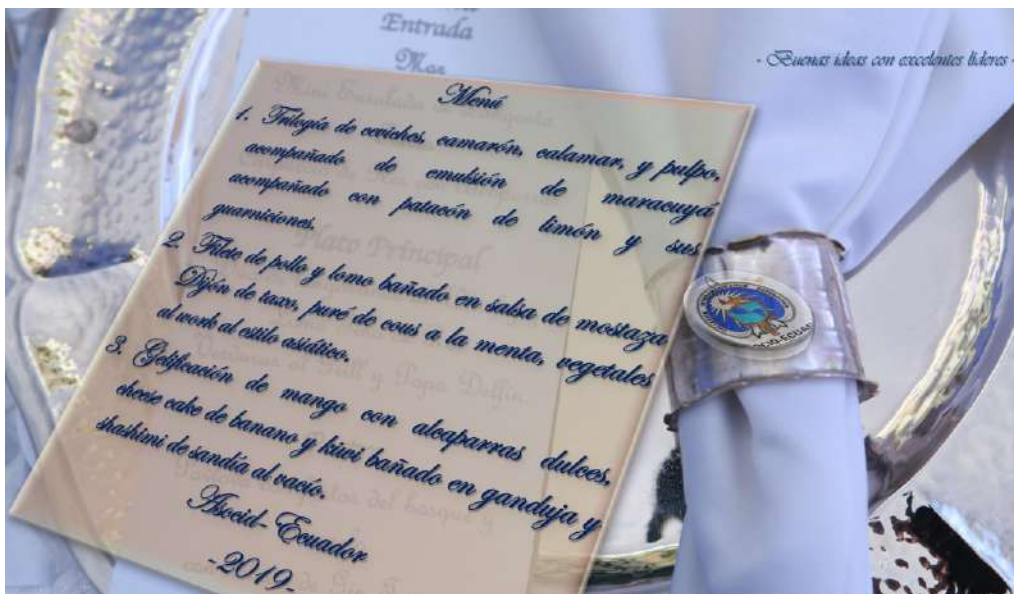 Entrada
Mar
- Buenas ideas con excelentes líderes -
Menú
1. Trilogía de ceviches, camarón, calamar, y pulpo,
acompañado de emulsión de maracuyá
acompañado con patacón de limón y sus
guarniciones.
Plato Principal
2. Filete de pollo y lomo bañado en salsa de mostaza
Dijón de taxo, puré de cous a la menta, vegetales
al work al estilo asiático.
Grill y Papa Delfín
3. Gelificación de mango con alcaparras dulces,
cheese cake de banano y kiwi bañado en ganduja y
shashimi de sandía al vacío.
del bosque y
Asocid-Ecuador
-2019-